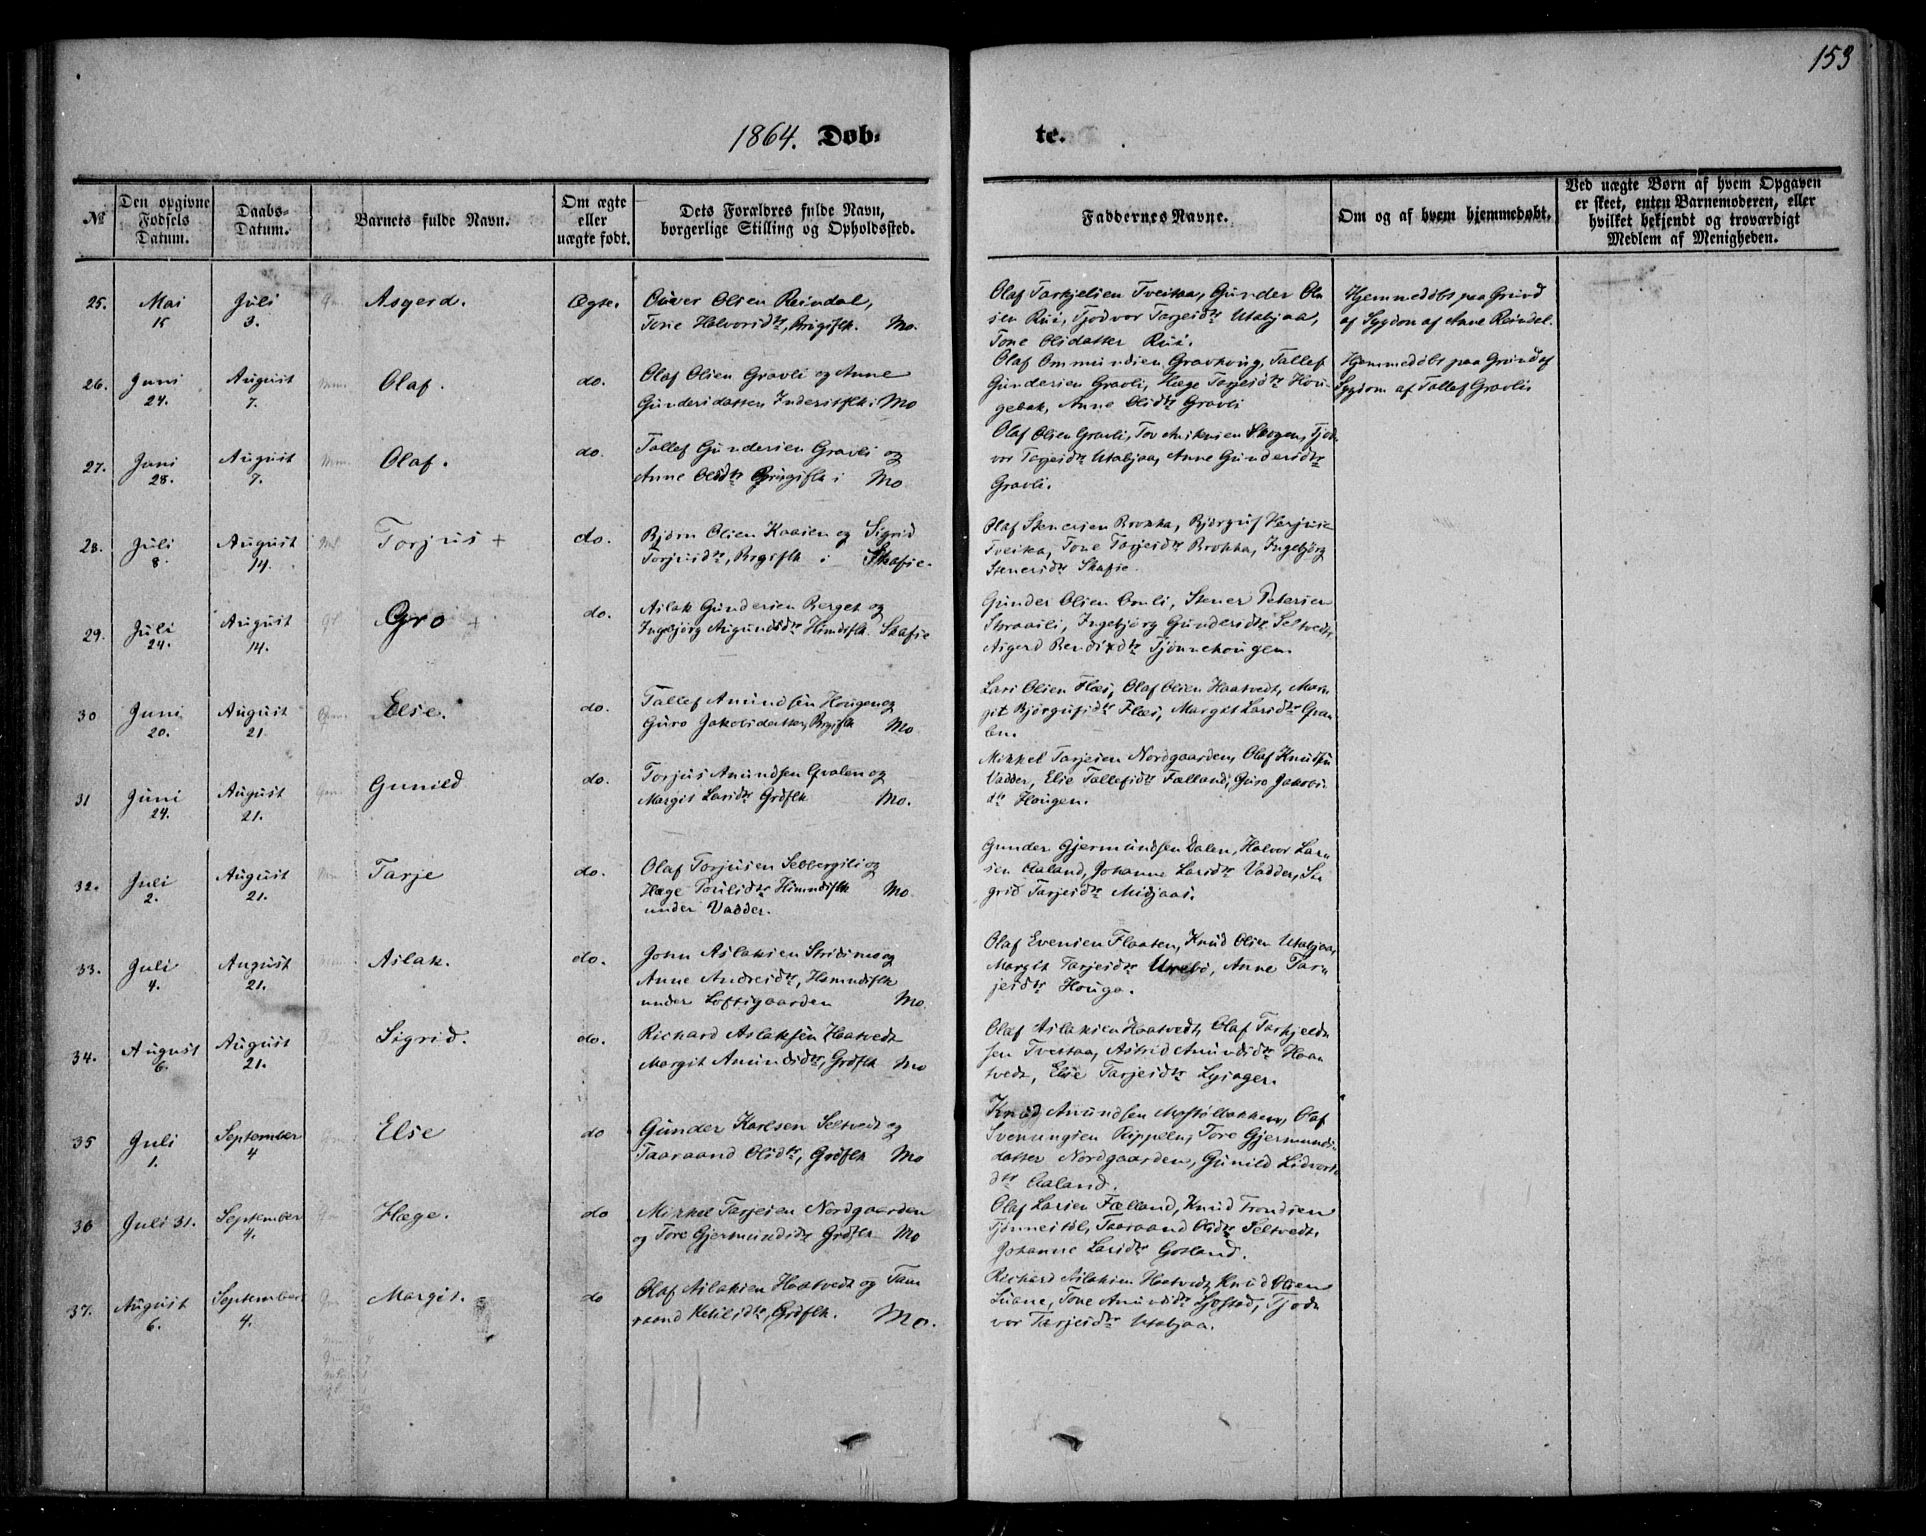 153
1864. Døb-
te.
№
Den opgivne
Fødsels
Datum.
Daabs-
Datum.
Barnets fulde Navn.
Om ægte
eller
uægte født.
Dets Forældres fulde Navn,
borgerlige Stilling og Opholdssted.
Faddernes Navne.
Om og af hvem hjemmedøbt.
Ved uægte Børn af hvem Opgaven
er skeet, enten Barnemoderen, eller
hvilket bekjendt og troværdigt
Medlem af Menigheden.
25. Mai 15 Juli 3. Asgerd. Ægte.
Olsen Reindal,
Tone Halvorsdtr, Mo.
Olaf Tarkjelsen Tveitaa, Gunder Ol
sen Rui, Tjodvor Tarjeisdtr Utabjaa,
Tone Olsdatter Rui.
Hjemmedøbt paa Grund
af Sygdom af Anne Reindal.
26. Juni 24. August 7. Olaf. do.
Olaf Olsen Gravli og Anne
Gundersdatter Mo
Olaf Ommundsen Tallef
Gundersen Gravli, Hæge Tarjeisdtr Hou
gebak, Anne Olsdtr Gravli
Hjemmedøbt paa Grund af
Sygdom af Tallef Gravli
27. Juni 28. August 7. Olaf. do.
Tallef Gundersen Gravli og
Anne Olsdtr i Mo
Olaf Olsen Gravli, Tov Skogen, Tjod
vor Tarjeisdtr Utabjaa, Anne Gundersdtr
Gravli.
28. Juli 8. August 14. Torjus + do.
Bjørn Olsen Kaasen og Sigrid
Torjusdtr, i Skafse.
Olaf Stenersen Brokka, Bjørguf
Tveita, Tone Tarjeisdtr Brokka, Ingebjørg
Stenersdtr Skafse.
29. Juli 24. August 14. Gro + do.
Aslak Gundersen Berget og
Ingebjørg Augundsdtr Skafse
Gunder Olsen Omli, Stener Petersen
Skraaili, Ingebjørg Gundersdtr Seltvedt,
Asgerd Bendixdtr Tjønnehougen
30 Juni 20. August 21. Else. do.
Tallef Amundsen Hougen og
Guro Jakobsdatter, Mo
Lars Olsen Flæs, Olaf Olsen Haatvedt, Mar
git Bjørgufsdtr Flæs, Margit Larsdtr
31 Juni 24. August 21. Gunild do.
Torjus Amundsen Qvalen og
Margit Larsdtr Mo.
Mikkel Tarjeisen Nordgaarden, Olaf Knudsen
Vadder, Else Tallefsdtr Fælland, Guro Jakobs
dtr Hougen.
32. Juli 2. August 21. Tarje do.
Olaf Torjusen og
Hæge Mo.
under Vadder.
Gunder Gjermundsen Dalen, Halvor Lar
sen Aaland, Johanne Larsdtr Vadder, Si
grid Tarjeisdtr Midjaas.
33. Juli 4. August 21. Aslak. do.
John Aslaksen og
Anne Andreisdtr,
under Loftsgaarden Mo
Olaf Evensen Flaaten, Knud Olsen Utabjaa,
Margit Tarjeisdtr Urebø, Anne Tar
jeisdtr Houga.
34. August 6. August 21. Sigrid. do.
Richard Aslaksen Haatvedt
Margit Amundsdtr, Mo
Olaf Aslaksen Haatvedt, Olaf Tarkjeld
sen Tveitaa, Astrid Amundsdtr Haa
tvedt, Else Tarjeisdtr Lysager.
35 Juli 1. September 4 Else do
Gunder Karlsen Seltvedt og
Taaraand Olsdtr, Mo
Knud Amundsen Olaf
Svenungsen Rippeln, Tore Gjermunds
datter Nordgaarden, Gunild Lidvors
dtr Aaland.
36 Juli 31. September 4. Hæge. do
Mikkel Tarjeisen Nordgaarden
og Tore Gjermundsdtr Mo
Olaf Larsen Fælland, Knud Trondsen
Tjønnestøl, Taaraand Olsdtr Seltvedt,
Johanne Larsdtr Gosland.
37. August 6. September 4. Margit. do
Olaf Aslaksen Haatvedt og Taa
raand Ketilsdtr, Mo.
Richard Aslaksen Haatvedt, Knud Olsen
Tone Amundsdtr Tjod
vor Tarjeisdtr Utabjaa.